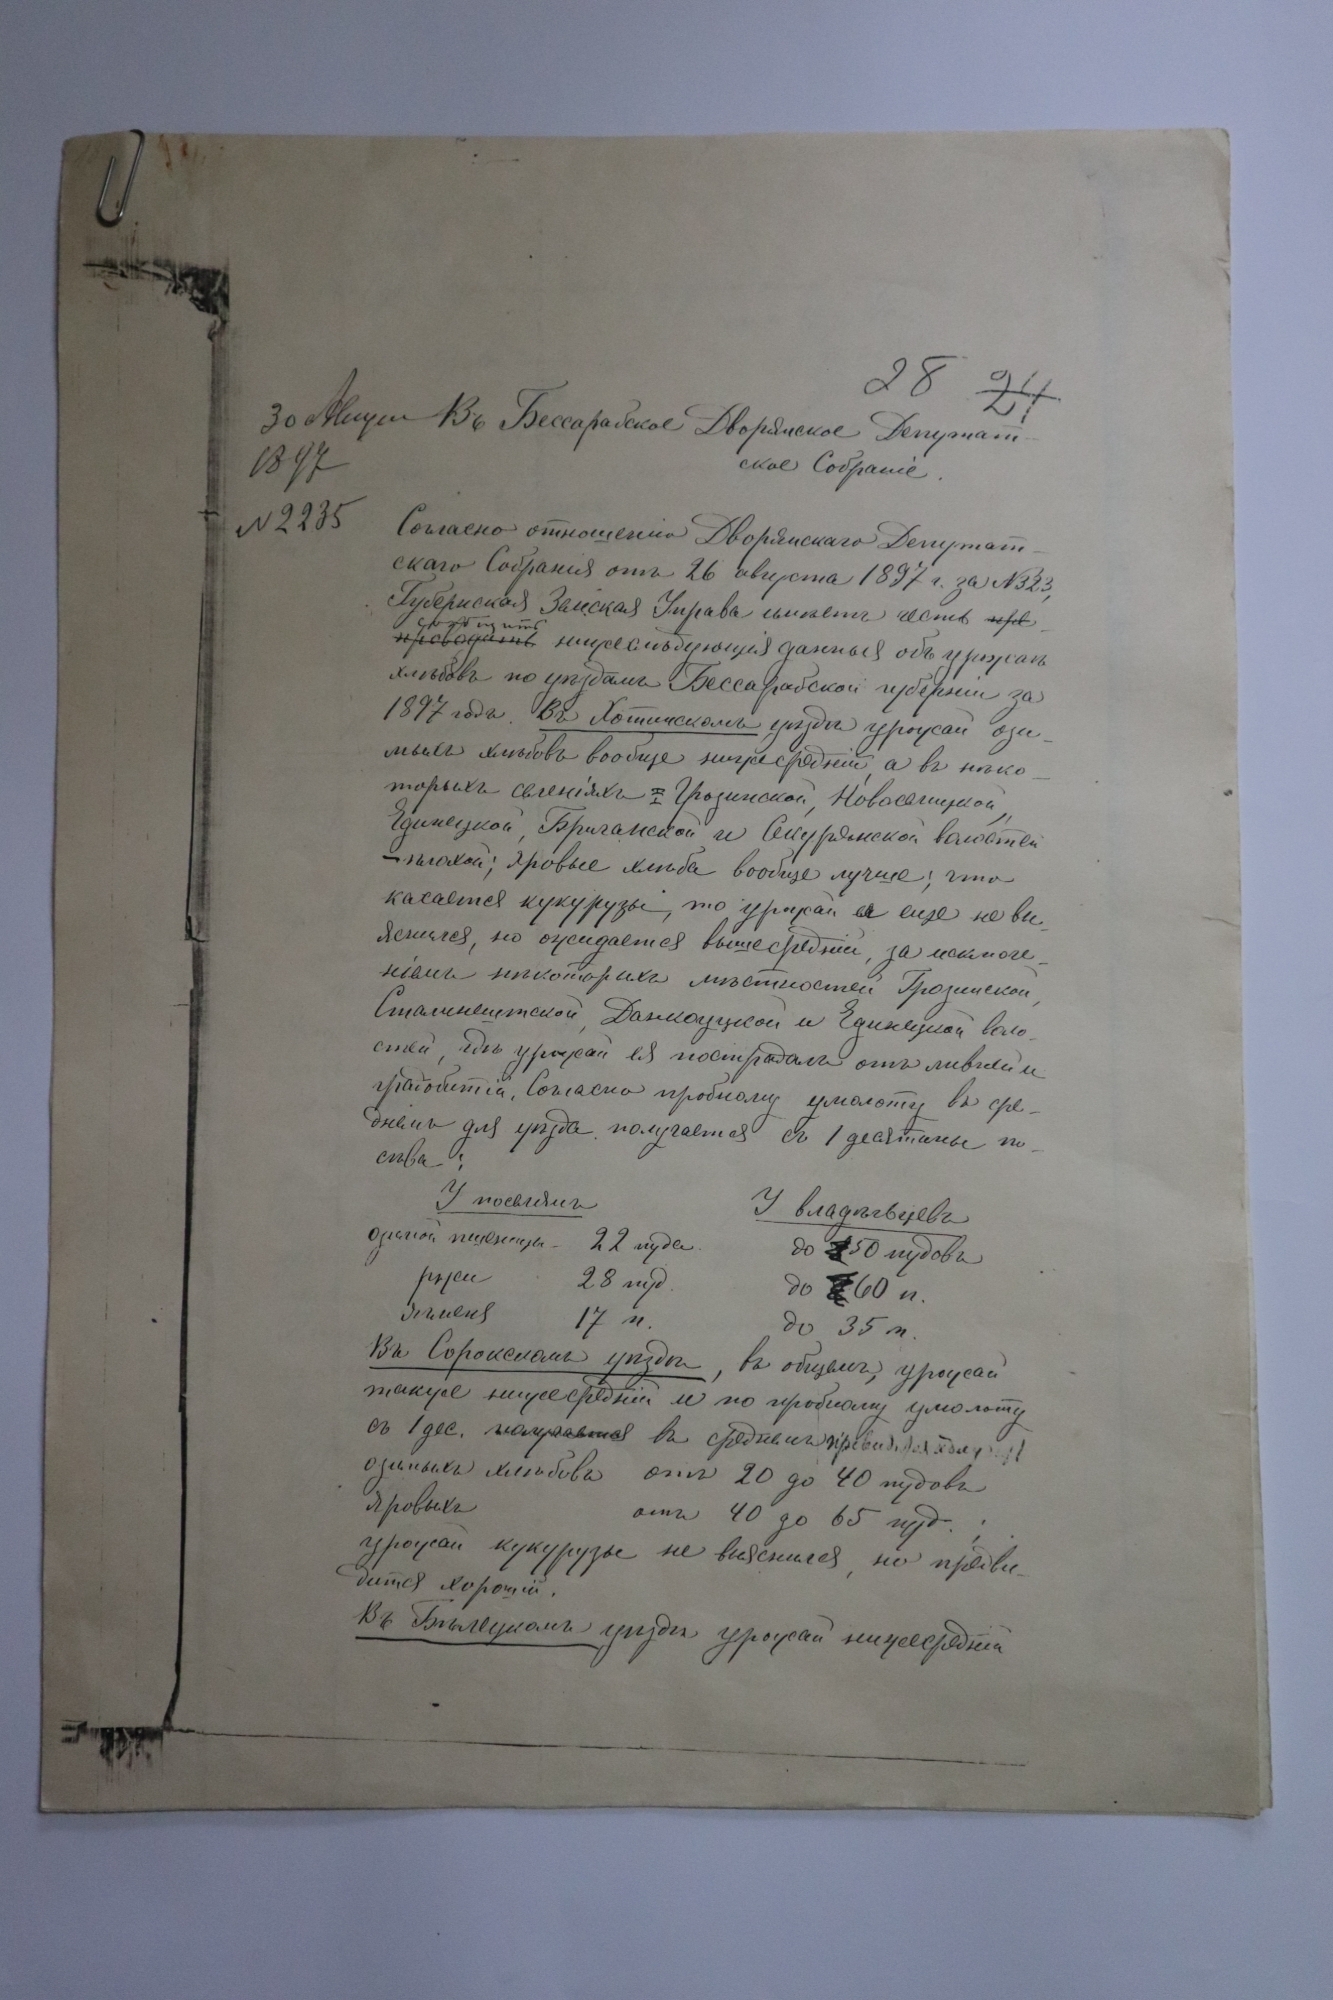 28 24
30 Августа Въ Бессарабское Дворянское Депутат-
1897 ское Собраніе.
№ 2235 Согласно отношенію Дворянскаго Депутат-
скаго Собранія отъ 26 августа 1897 г. за № 323,
Губернская Земская Управа имѣетъ честь пре-
сообщить
проводить нижеслѣдующія данныя объ урожаѣ
хлѣбовъ по уѣздамъ Бессарабской губерніи за
1897 годъ. Въ Хотинскомъ уѣздѣ урожай ози-
мыхъ хлѣбовъ вообще нижесредній, а въ нѣко-
торыхъ селеніяхъ Грозинской, Новоселицкой,
Единецкой, Бричанской и Секурянской волостей
— плохой; яровые хлѣба вообще лучше; что
касается кукурузы, то урожай ея еще не вы-
яснился, но ожидается вышесредній, за исключе-
ніемъ нѣкоторыхъ мѣстностей Грозинской,
Сталинештской, Данкоуцкой и Единецкой воло-
стей, гдѣ урожай ея пострадалъ отъ ливней и
градобитій. Согласно пробному умолоту въ сре-
днемъ для уѣзда получается съ 1 десятины по-
сѣва:
У поселянъ У владѣльцевъ
озимой пшеницы - 22 пуда. до 50 пудовъ
ржи 28 пуд. до 60 п.
ячменя 17 п. до 35 п.
Въ Сорокскомъ уѣздѣ, въ общемъ, урожай
также нижесредній и по пробному умолоту
съ 1 дес. получается въ среднемъ
озимыхъ хлѣбовъ отъ 20 до 40 пудовъ
яровыхъ отъ 40 до 65 пуд.;
урожай кукурузы не выяснился, но предви-
дится хорошій.
Въ Бѣлецкомъ уѣздѣ урожай нижесредній